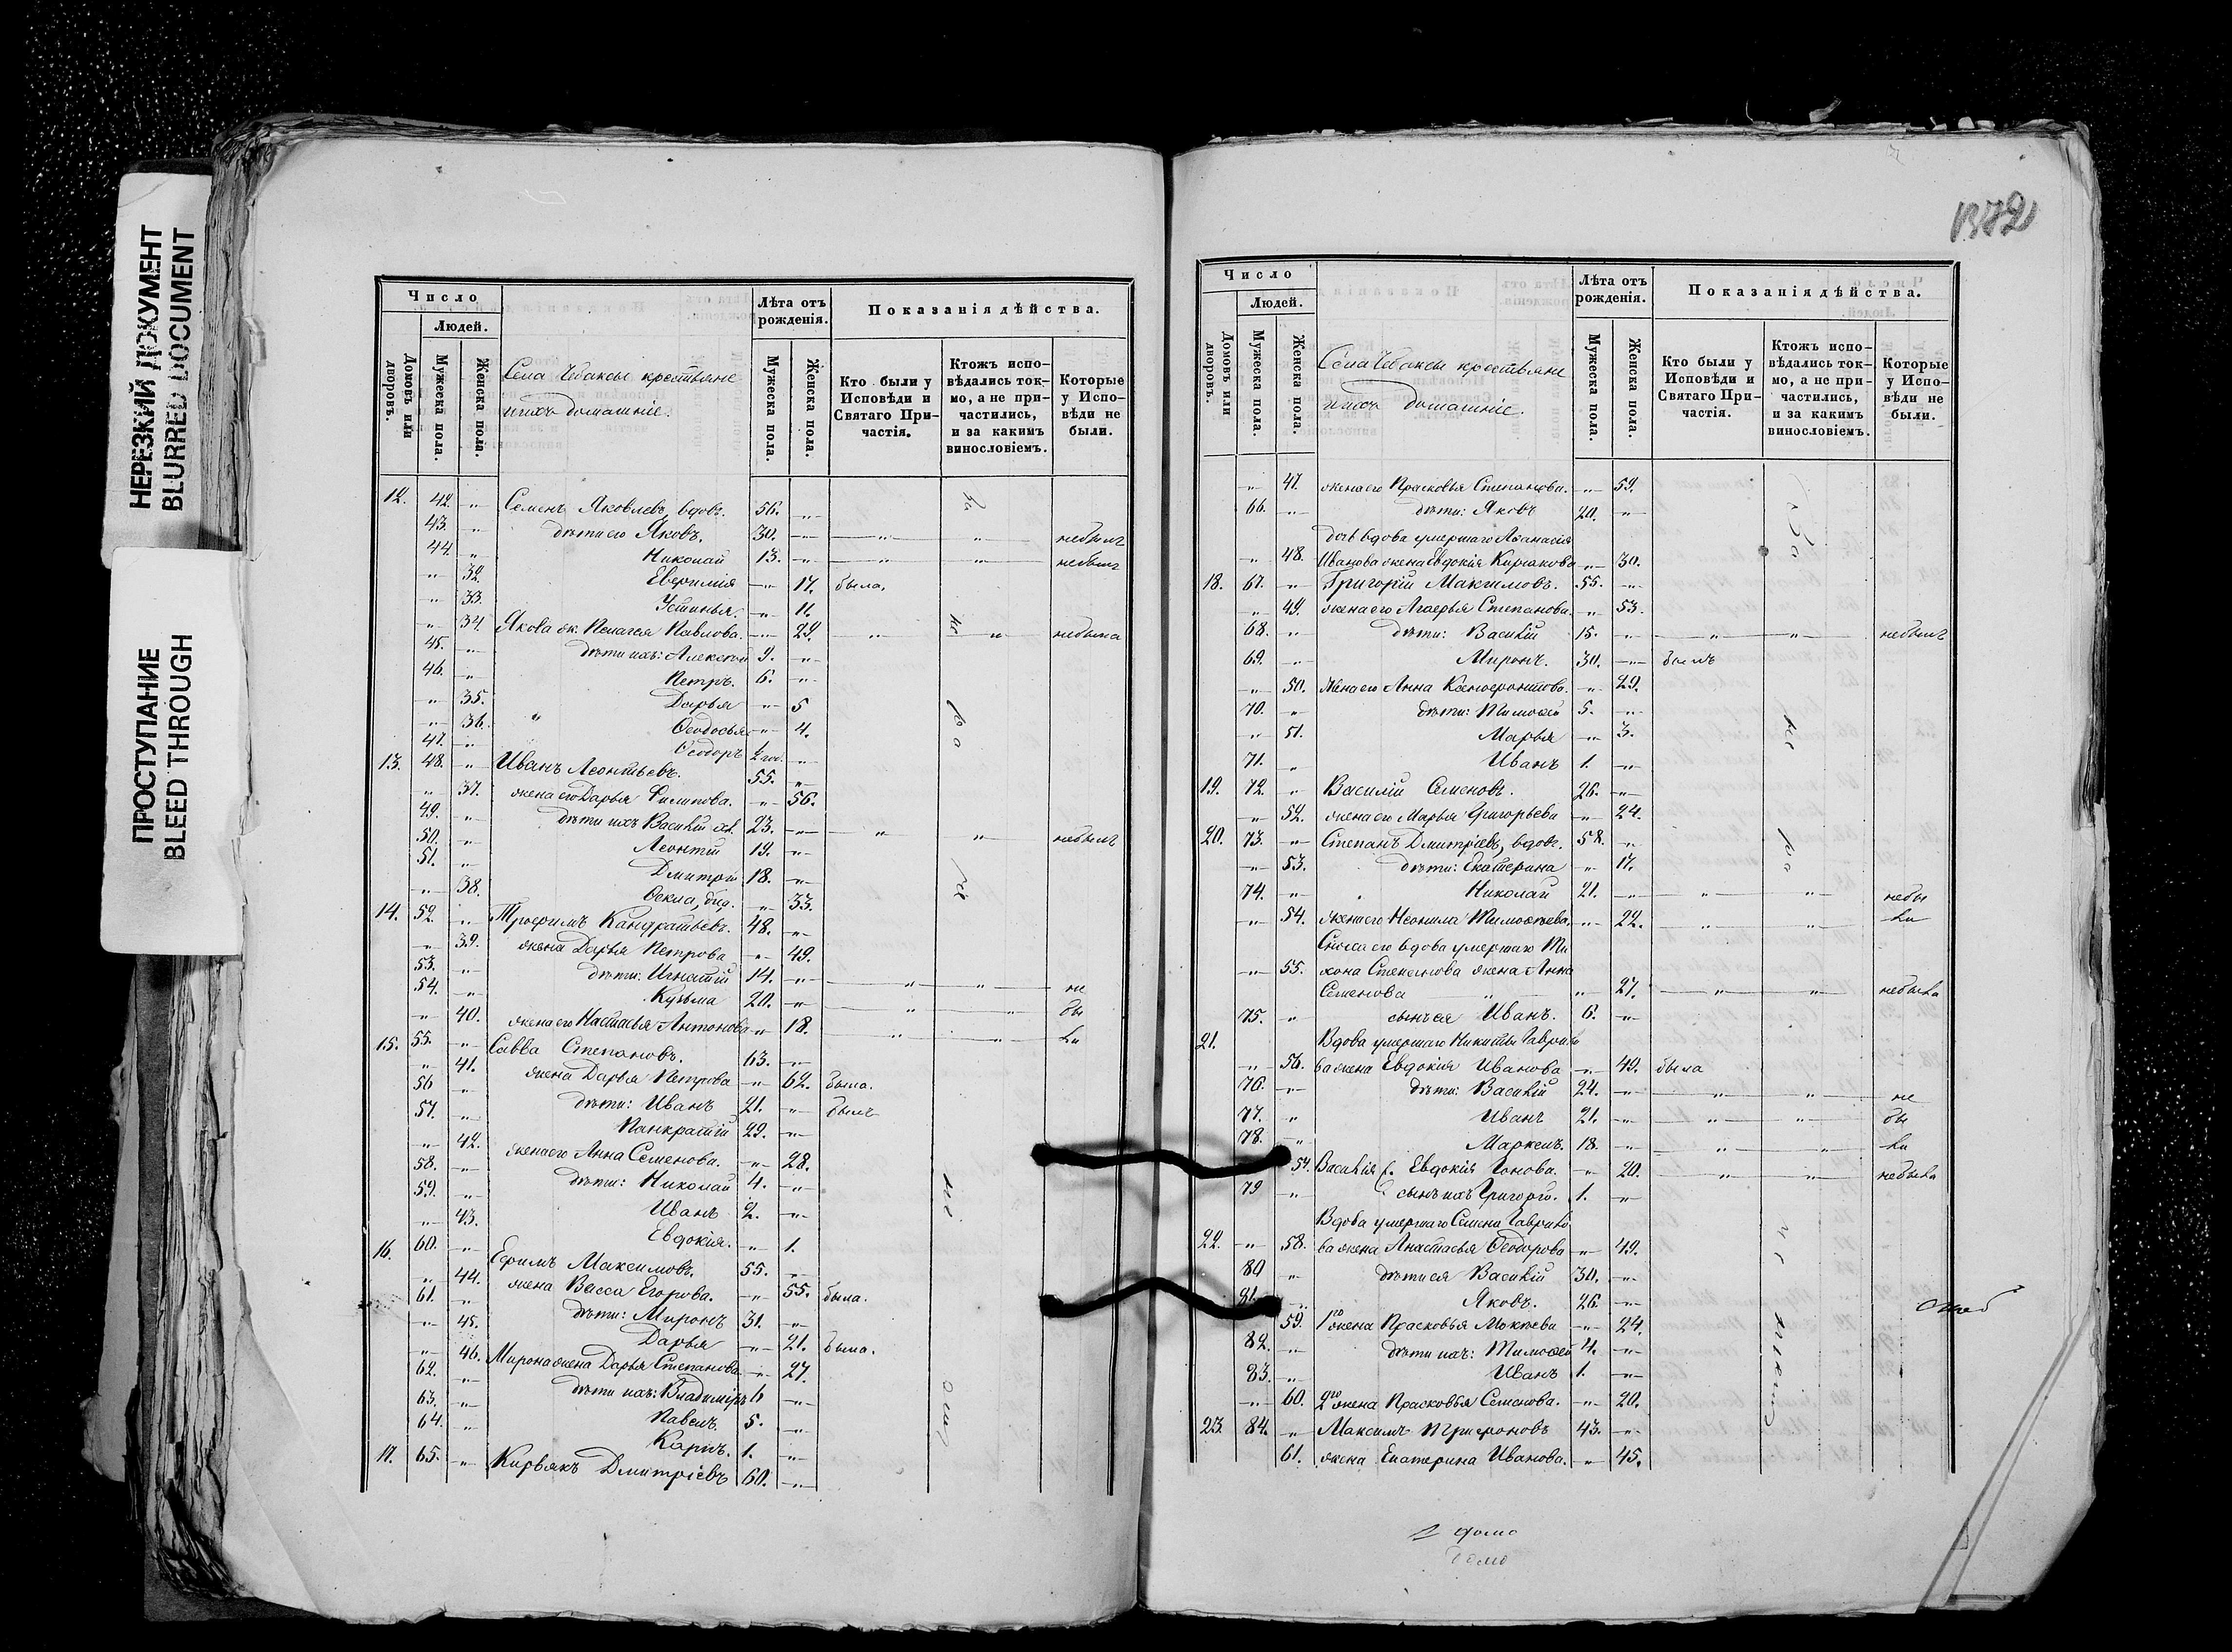 НЕРЕЗКИЙ ДОКУМЕНТ
BLURRED DOCUMENT
ПРОСТУПАНИЕ
BLEED THROUGH
Число
Людей.
Домовъ или дворовъ.
Мужеска пола.
Женска пола.
Села Чебаксы крестьяне
и ихъ домашніе.
Лѣта отъ рожденія.
Мужеска пола.
Женска пола.
Показанія дѣйства.
Кто были у Исповѣди и Святаго Причастія.
Ктожъ исповѣдались токмо, а не причастились, и за какимъ винословіемъ.
Которые у Исповѣди не были.
12. 42. „ Семенъ Яковлевъ, вдовъ. 56. „
43. „ дѣти его Яковъ. 30. „ „ „ небылъ
44. „ Николай 13. „ „ „ небылъ
„ 32. Евфимія „ 17. была.
„ 33. Устинья. „ 11
„ 34. Якова ж. Пелагея Павлова. „ 29. „ „ небыла
45. „ дѣти ихъ: Алексѣй 9. „
46. „ Петръ. 6. „
„ 35. Дарья „ 5
„ 36. „ Ѳеодосья „ 4.
47. „ Ѳеодоръ ½ год. „
13. 48. „ Иванъ Леонтьевъ. 55. „
„ 37. жена его Дарья Филипова. „ 56.
49. „ дѣти ихъ Василій 23. „ „ „ небылъ
50. „ Леонтій 19. „
51. „ Дмитрій 18. „
„ 38. Ѳекла, „ 33.
14. 52. „ Трофимъ Кандратьевъ. 48. „
„ 39. жена Дарья Петрова „ 49.
53. „ дѣти: Игнатій 14. „ „ „ не
54. „ Кузьма 20. „ „ „ бы
„ 40. жена его Настасья Антонова „ 18. „ „ ли
15. 55. „ Савва Степановъ. 63. „
„ 41. жена Дарья Петрова „ 62. была.
56 „ дѣти: Иванъ 21. „ былъ
57. „ Панкратій 29. „
„ 42. жена его Анна Семенова. „ 28.
58. „ дѣти: Николай 4. „
59. „ Иванъ 2. „
„ 43. Евдокія. „ 1.
16. 60. „ Ефимъ Максимовъ. 55. „
„ 44. жена Васса Егорова. „ 55. была.
61. „ дѣти: Миронъ 31. „
„ 45. Дарья „ 21. была.
„ 46. Мирона жена Дарья Степанова „ 27.
62. „ дѣти ихъ: Владиміръ 6 „
63. „ Павелъ. 5. „
64. „ Карпъ. 1. „
17. 65. „ Кирьякъ Дмитріевъ 60. „
1372
Число
Людей.
Домовъ или дворовъ.
Мужеска пола.
Женска пола.
Села Чебаксы крестьяне
и ихъ домашніе.
Лѣта отъ рожденія.
Мужеска пола.
Женска пола.
Показанія дѣйства.
Кто были у Исповѣди и Святаго Причастія.
Ктожъ исповѣдались токмо, а не причастились, и за какимъ винословіемъ.
Которые у Исповѣди не были.
„ 47. жена его Прасковья Степанова. „ 59.
66. „ дѣти: Яковъ 20. „
вдова умершаго Аѳанасія
„ 48. Иванова жена Евдокія Кирьякова „ 30.
18. 67. „ Григорій Максимовъ. 55. „
„ 49. жена его Агаѳья Степанова. „ 53.
68. „ дѣти: Василій 15. „ „ „ небылъ
69. „ Миронъ. 30. „ былъ
„ 50. жена его Анна Ксенофонтова. „ 29.
70. „ дѣти: Тимоѳей 5. „
„ 51. Марья „ 3.
71. „ Иванъ 1. „
19. 72. „ Василій Семеновъ. 26. „
„ 52. жена его Марья Григорьева „ 24.
20. 73. „ Степанъ Дмитріевъ, вдовъ. 58. „
„ 53. дѣти: Екатерина „ 17.
74. „ Николай 21. „ „ „ небы
„ 54. жена его Неонила Тимоѳеева. „ 22. „ „ ли
Сноха его вдова умершаго Ти
„ 55. хона Степанова жена Анна
Семенова „ „ 27. „ „ небыла
75. „ сынъ ея Иванъ. 6. „
21. Вдова умершаго Никиты Гаврило
„ 56. ва жена Евдокія Иванова „ 49. была
76. „ дѣти: Василій 24. „ „ „ не
77. „ Иванъ 21. „ „ „ бы
78. „ Маркелъ. 18. „ „ „ ли
57. Василія ж. Евдокія Іонова. „ 20. „ „ небыла
79 „ сынъ ихъ Григорій. 1. „
Вдова умершаго Семена Гаврило
22. „ 58. ва жена Анастасья Ѳеодорова „ 49.
80 „ дѣти ея Василій 30. „
81. „ Яковъ. 26. „
59. 1го жена Прасковья Мокѣева „ 24.
82. „ дѣти ихъ: Тимоѳей 4. „
83. „ Иванъ 1. „
„ 60. 2го жена Прасковья Семенова. „ 20.
23. 84. „ Максимъ Трифоновъ 43. „
61. жена Екатерина Иванова. „ 45.